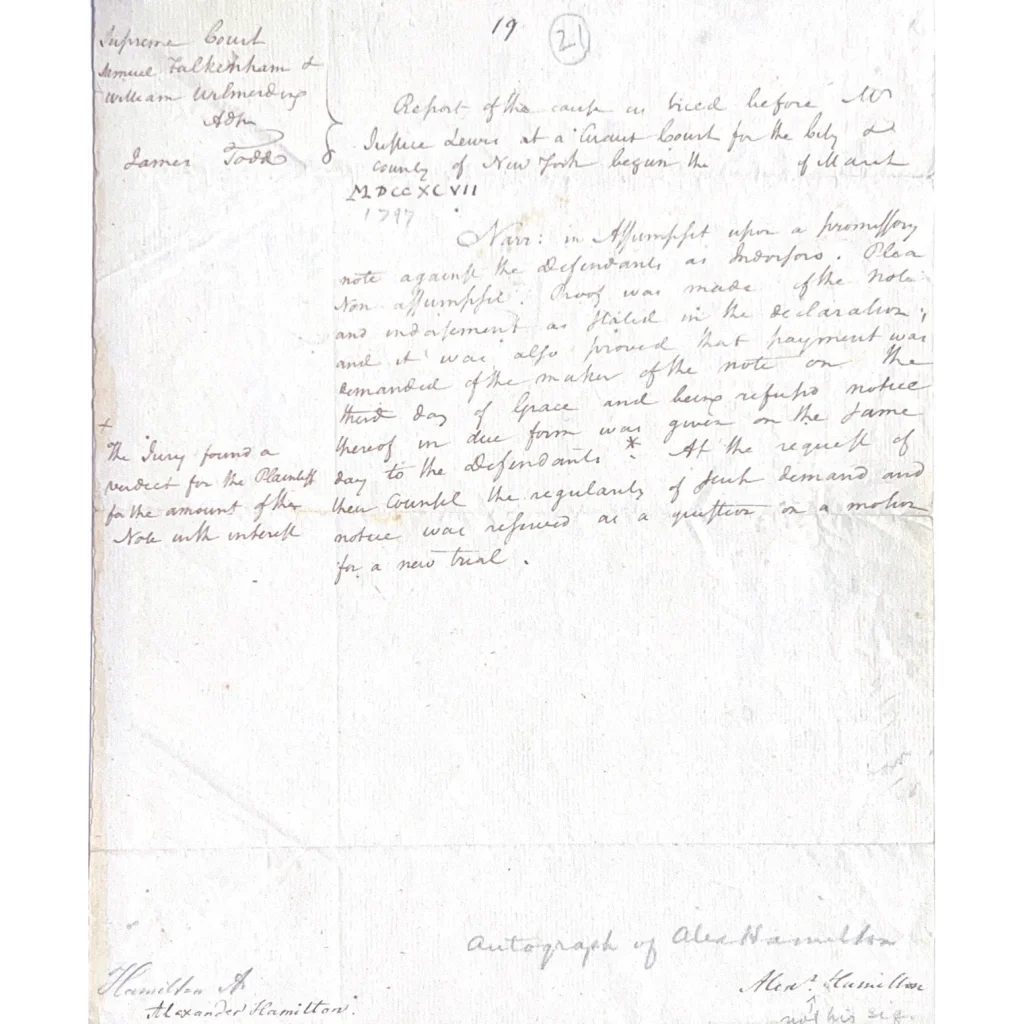 19
21
Supreme Court
Samuel Falkenham &
William Wilmerding
Adsm
James Todd
Report of the cause as tried before Mr
Justice Lewis at a Circuit Court for the City &
county of New York begun the of March
MDCCXCVII
1797
Narr: in Assumpsit upon a promissory
note against the defendants as Indorsors. Plea
Non assumpsit. Proof was made of the Note
and indorsement as stated in the declaration;
and it was also proved that payment was
demanded of the maker of the note on the
third day of Grace and being refused notice
thereof in due form was given on the same
day to the defendants * . At the request of
their Counsel the regularity of such demand and
notice was reserved as a question on a motion
for a new trial .
+
The Jury found a
verdict for the Plaintiff
for the amount of the
Note with interest
Autograph of Alex Hamilton
Hamilton A.
Alexander Hamilton.
Alexr. Hamilton
not his sig.